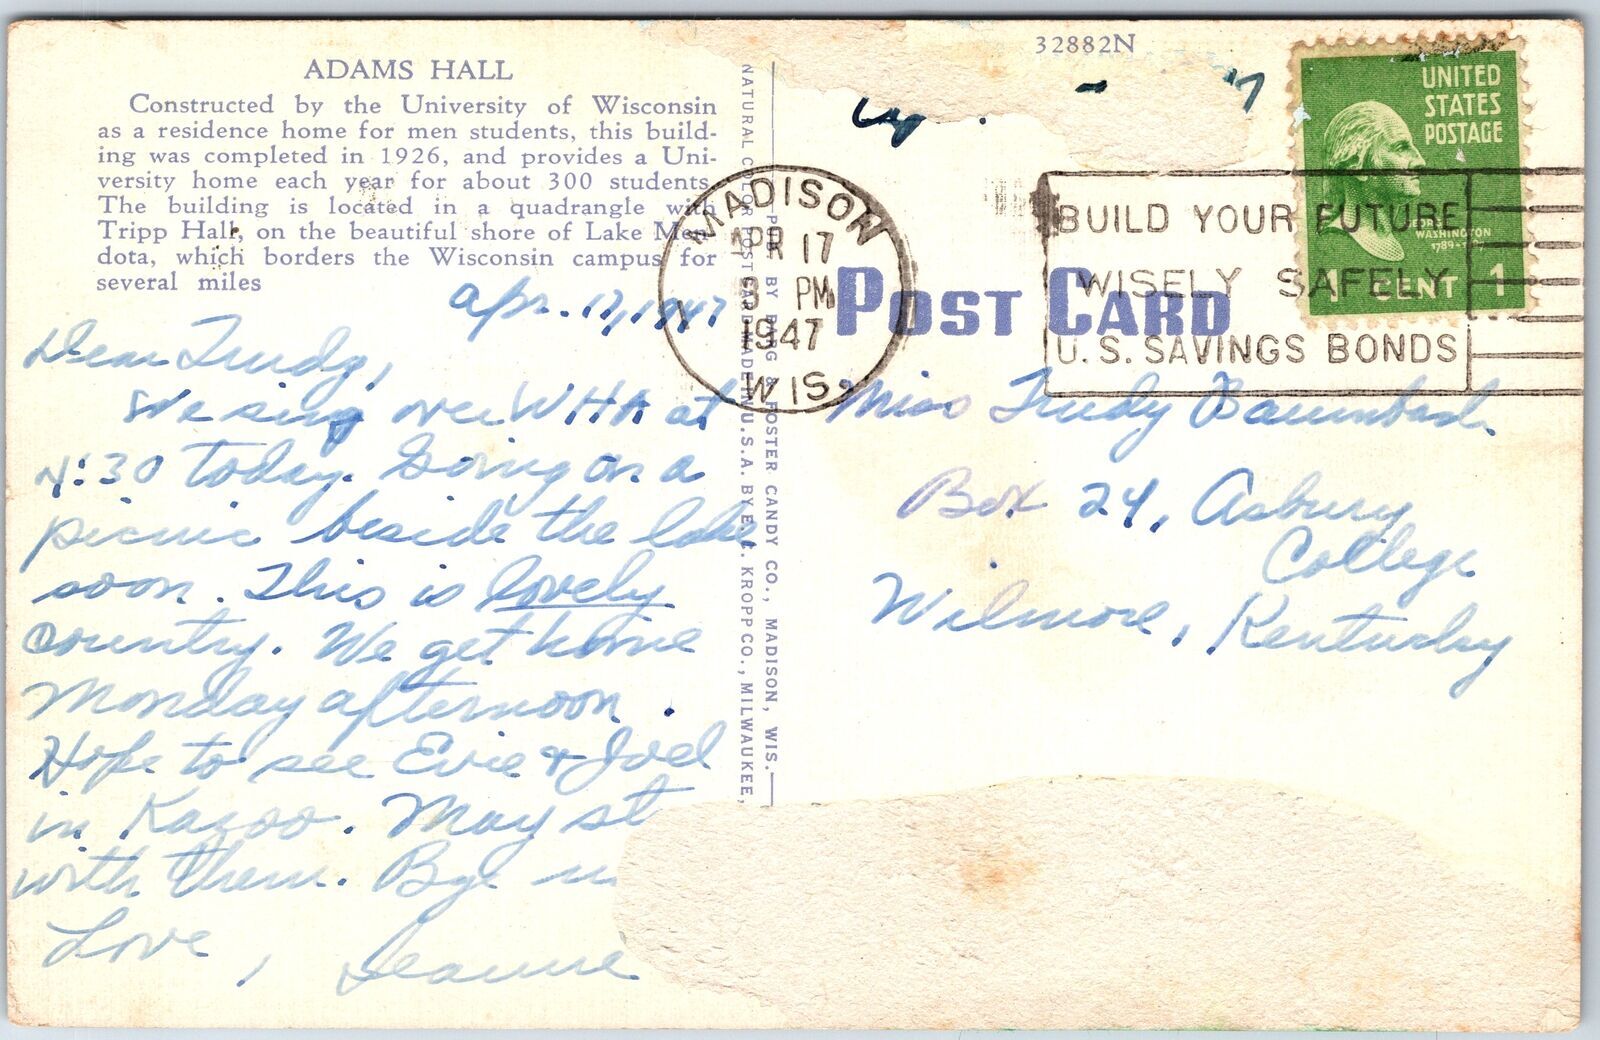 32882N
ADAMS HALL
Constructed by the University of Wisconsin
as a residence home for men students, this build-
ing was completed in 1926, and provides a Uni-
versity home each year for about 300 students.
The building is located in a quadrangle with
Tripp Hall, on the beautiful shore of Lake Men-
dota, which borders the Wisconsin campus for
several miles
Apr. 17, 1947
Dear Trudy,
We sing over WHA at
4:30 today. Going on a
picnic beside the lake
soon. This is lovely
country. We get home
Monday afternoon.
Hope to see Evie & Joel
in Kazoo. May st
with them. Bye
Love,
Jeanne
NATURAL COLOR POST CARD MADE IN U.S.A. BY E. C. KROPP CO., MILWAUKEE,
PUB. BY BARG & FOSTER CANDY CO., MADISON, WIS.
MADISON
APR 17
PM
1947
WIS.
POST CARD
BUILD YOUR FUTURE
WISELY SAFELY
U.S. SAVINGS BONDS
UNITED
STATES
POSTAGE
GEORGE
WASHINGTON
1 CENT 1
Miss Trudy Baumbach
Box 24, Asbury
College
Wilmore, Kentucky